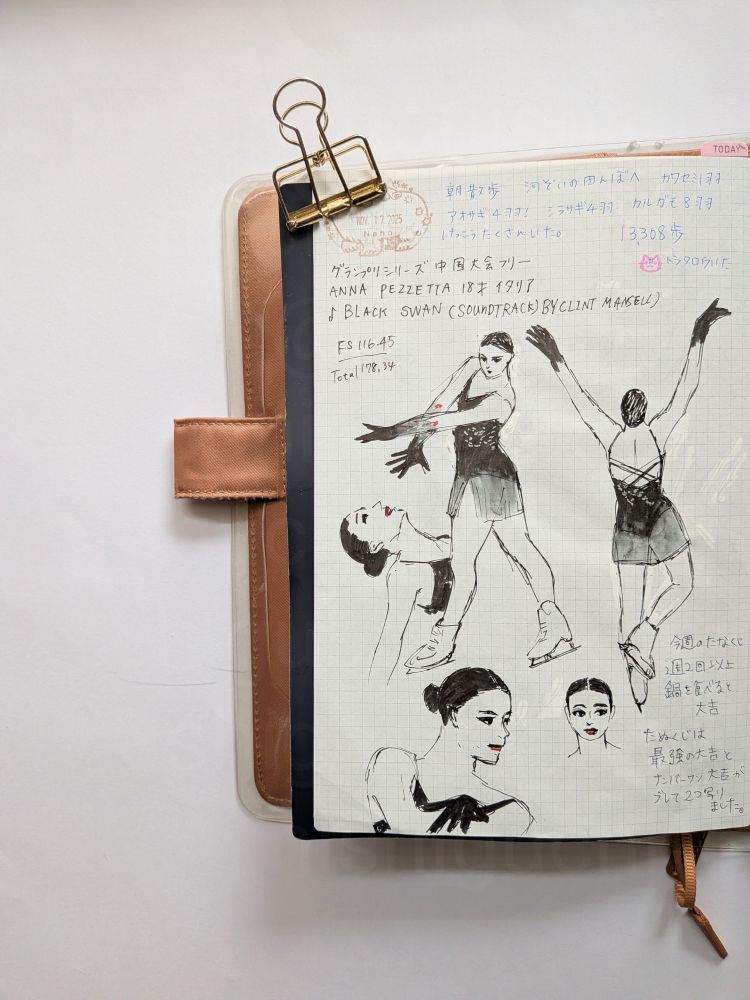 TODAY
朝散歩 河ぞいの田んぼへ カワセミ1羽
アオサギ4羽! シラサギ4羽 カルガモ8羽
けっこうたくさんいた。 13,308歩
NOV. 17. 2025
Naha
トラタロウいた
グランプリシリーズ 中国大会フリー
ANNA PEZZETTA 18才 イタリア
♪ BLACK SWAN (SOUNDTRACK) BY CLINT MANSELL)
FS 116.45
Total 178.34
今週のたなくじ
週2回以上
鍋を食べると
大吉
たぬくじは
最強の大吉と
ナンバーワン大吉が
ブレて2つ写り
ました。